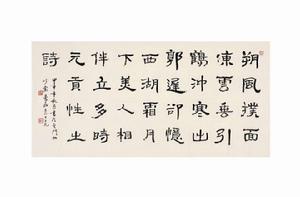 朔風撲面
凍雲垂引
鶴沖寒出
郭遲卻憶
西湖霜月
下美人相
伴立多時
元貢性之
詩